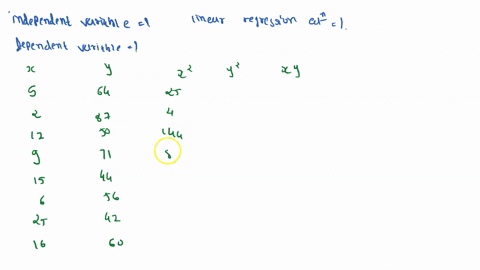 independent variable = 1 linear regression eqⁿ = 1.
Dependent variable = 1
x y x² y² xy
5 64 25
2 87 4
12 50 144
9 71 8
15 44
6 56
25 42
16 60